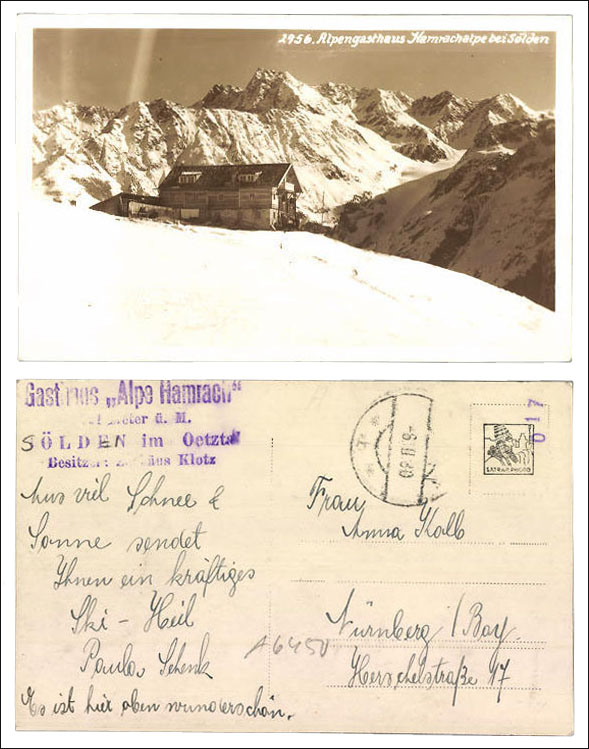 2956. Alpengasthaus Hamrachalpe bei Sölden
Gasthaus „Alpe Hamrach“
Meter ü. M.
SÖLDEN im Oetztal
Besitzer: Klotz
Aus viel Schnee &
Sonne sendet
Ihnen ein kräftiges
Ski - Heil
Paula Schenk
Es ist hier oben wunderschön.
A6450
017
Frau
Anna Kolb
Nürnberg / Bay.
Herschelstraße 17